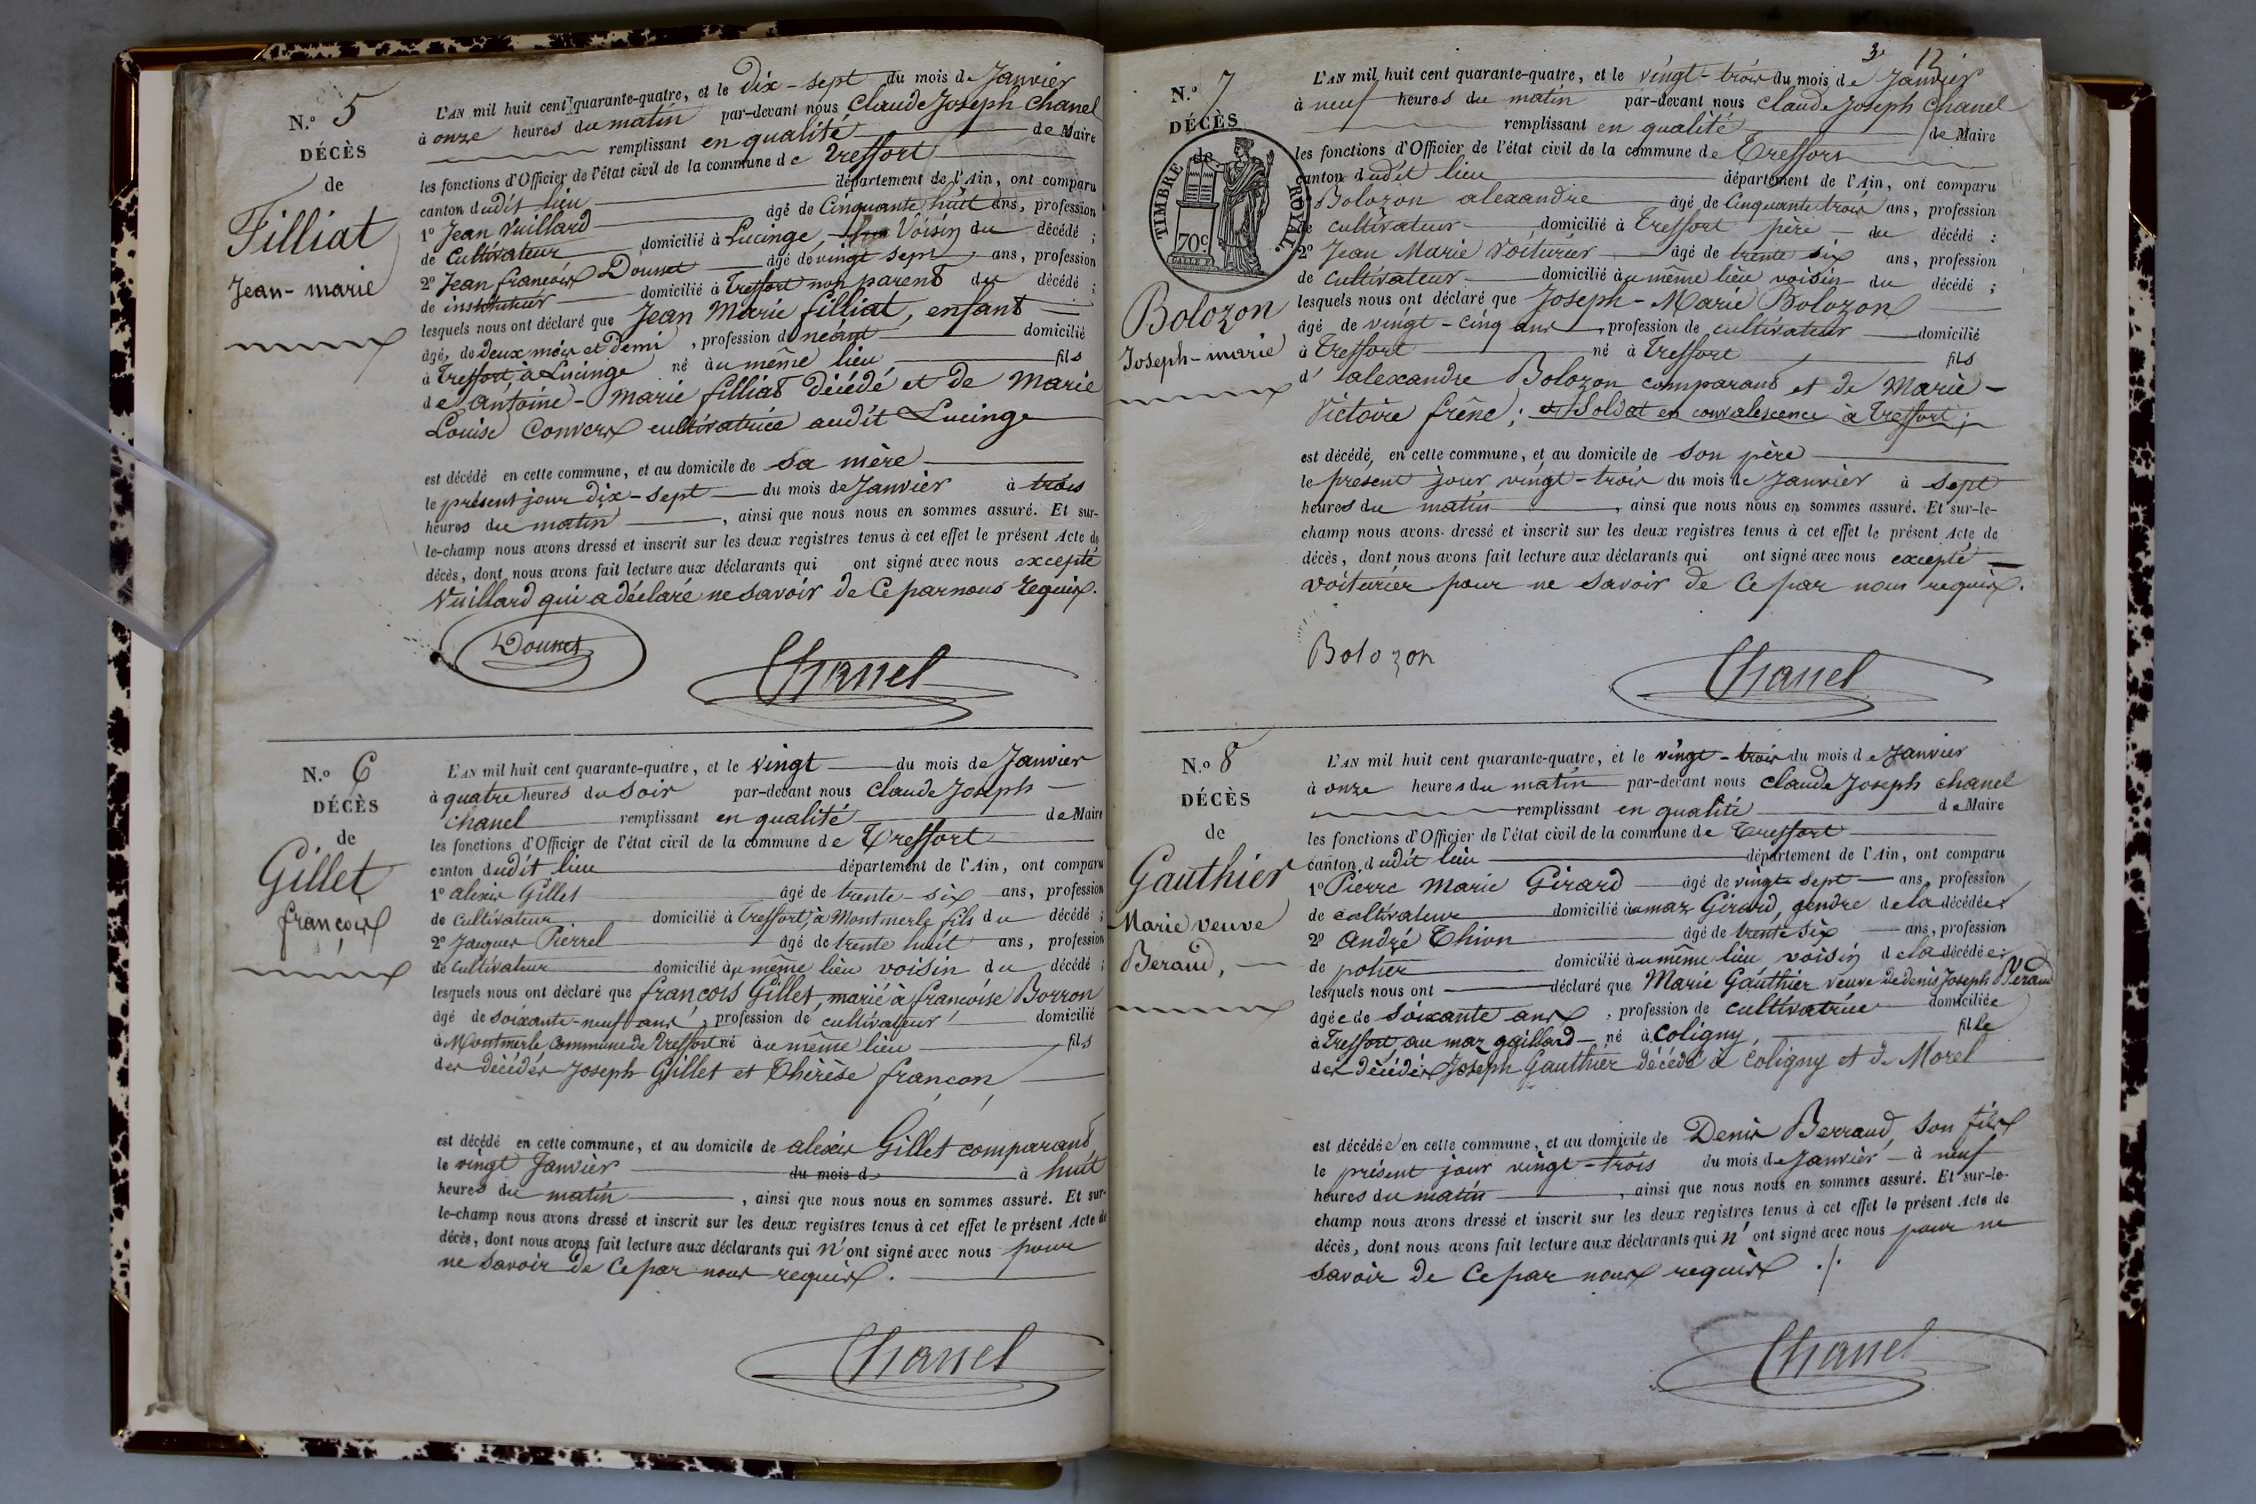 N.º 5
DÉCÈS
de
Filliat
Jean-marie
L'AN mil huit cent quarante-quatre, et le Dix-sept du mois de Janvier
à onze heures du matin par-devant nous Claude Joseph Chanel
remplissant en qualité de Maire
les fonctions d'Officier de l'état civil de la commune de Treffort
canton dudit lieu département de l'Ain, ont comparu
1º Jean Vuillard âgé de Cinquante huit ans, profession
de Cultivateur domicilié à Lucinge, Voisin du décédé ;
2º Jean françois Dounet âgé de vingt sept ans, profession
de instituteur domicilié à Treffort non parent du décédé ;
lesquels nous ont déclaré que Jean Marie filliat, enfant
âgé de deux mois et demi, profession de néant domicilié
à Treffort à Lucinge né au même lieu fils
de Antoine-Marie filliat Décédé et de Marie
Louise Convers cultivatrice audit Lucinge
est décédé en cette commune, et au domicile de sa mère
le présent jour dix-sept du mois de Janvier à trois
heures du matin, ainsi que nous nous en sommes assuré. Et sur-
le-champ nous avons dressé et inscrit sur les deux registres tenus à cet effet le présent Acte de
décès, dont nous avons fait lecture aux déclarants qui ont signé avec nous excepté
Vuillard qui a déclaré ne savoir de Ce par nous requis.
Dounet
Chanel
N.º 6
DÉCÈS
de
Gillet
françois
L'AN mil huit cent quarante-quatre, et le vingt du mois de Janvier
à quatre heures du soir par-devant nous Claude Joseph
Chanel remplissant en qualité de Maire
les fonctions d'Officier de l'état civil de la commune de Treffort
canton dudit lieu département de l'Ain, ont comparu
1º alexis Gillet âgé de trente-six ans, profession
de Cultivateur domicilié à Treffort, à Montmerle fils du décédé ;
2º Jacques Pierrel âgé de trente huit ans, profession
de Cultivateur domicilié au même lieu voisin du décédé ;
lesquels nous ont déclaré que françois Gillet, marié à françoise Borron
âgé de soixante-neuf ans, profession de cultivateur domicilié
à Montmerle Commune de Treffort né au même lieu fils
des décédés Joseph Gillet et Thérèse françon,
est décédé en cette commune, et au domicile de alexis Gillet comparant
le vingt Janvier du mois d à huit
heures du matin, ainsi que nous nous en sommes assuré. Et sur-
le-champ nous avons dressé et inscrit sur les deux registres tenus à cet effet le présent Acte de
décès, dont nous avons fait lecture aux déclarants qui n'ont signé avec nous pour
ne savoir de Ce par nous requis.
Chanel
3 12
N.º 7
DÉCÈS
de
TIMBRE ROYAL
70c
Bolozon
Joseph-marie
L'AN mil huit cent quarante-quatre, et le vingt-trois du mois de Janvier
à neuf heures du matin par-devant nous Claude Joseph Chanel
remplissant en qualité de Maire
les fonctions d'Officier de l'état civil de la commune de Treffort
canton dudit lieu département de l'Ain, ont comparu
Bolozon alexandre âgé de Cinquante trois ans, profession
de cultivateur domicilié à Treffort père du décédé ;
2º Jean Marie Voiturier âgé de trente six ans, profession
de Cultivateur domicilié au même lieu voisin du décédé ;
lesquels nous ont déclaré que Joseph-Marie Bolozon
âgé de vingt-cinq ans, profession de cultivateur domicilié
à Treffort né à Treffort fils
d'alexandre Bolozon comparant et de Marie-
Victoire frêne ; et Soldat en convalescence à Treffort ;
est décédé, en cette commune, et au domicile de son père
le présent jour vingt-trois du mois de Janvier à sept
heures du matin, ainsi que nous nous en sommes assuré. Et sur-le-
champ nous avons dressé et inscrit sur les deux registres tenus à cet effet le présent Acte de
décès, dont nous avons fait lecture aux déclarants qui ont signé avec nous excepté
Voiturier pour ne savoir de Ce par nous requis.
Bolozon
Chanel
N.º 8
DÉCÈS
de
Gauthier
Marie veuve
Beraud,
L'AN mil huit cent quarante-quatre, et le vingt-trois du mois de Janvier
à onze heures du matin par-devant nous Claude Joseph Chanel
remplissant en qualité de Maire
les fonctions d'Officier de l'état civil de la commune de Treffort
canton dudit lieu département de l'Ain, ont comparu
1º Pierre Marie Girard âgé de vingt sept ans, profession
de cultivateur domicilié au maz Girard, gendre de la décédée ;
2º André Thion âgé de trente six ans, profession
de potier domicilié au même lieu voisin de la décédée ;
lesquels nous ont déclaré que Marie Gauthier veuve de denis Joseph Beraud
âgée de soixante ans, profession de cultivatrice domiciliée
à Treffort au maz gaillard né à Coligny fille
des décédés Joseph Gauthier décédé à Coligny et de Morel
est décédée en cette commune, et au domicile de Denis Berraud, son fils
le présent jour vingt-trois du mois de Janvier à neuf
heures du matin, ainsi que nous nous en sommes assuré. Et sur-le-
champ nous avons dressé et inscrit sur les deux registres tenus à cet effet le présent Acte de
décès, dont nous avons fait lecture aux déclarants qui n'ont signé avec nous pour ne
savoir de Ce par nous requis ./.
Chanel